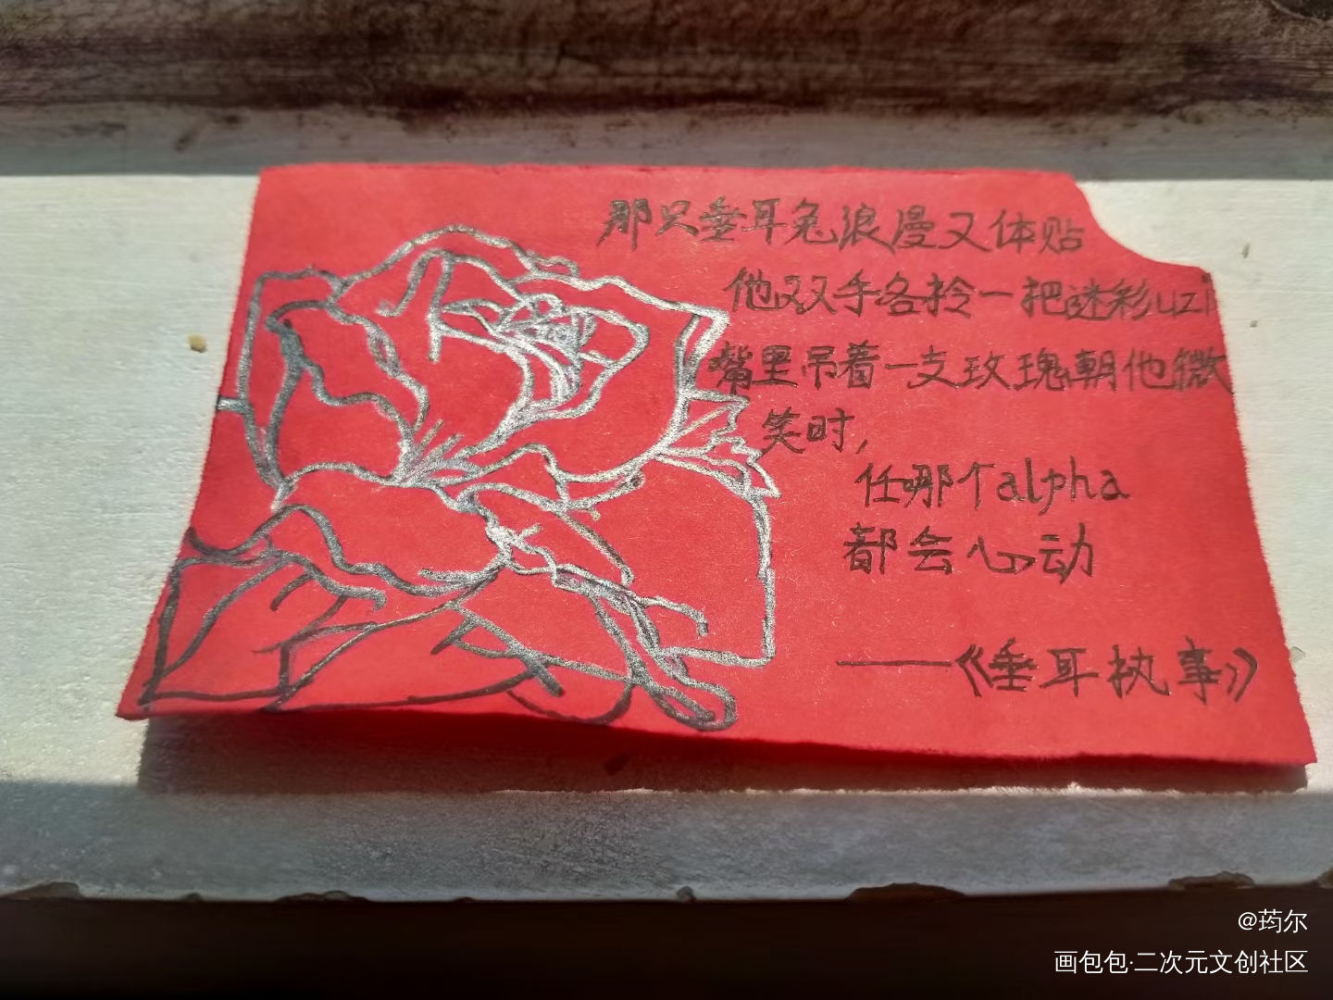 那只垂耳兔浪漫又体贴
他双手各拎一把迷彩uzi
嘴里吊着一支玫瑰朝他微
笑时,
任哪个alpha
都会心动
——《垂耳执事》
@荺尔
画包包·二次元文创社区